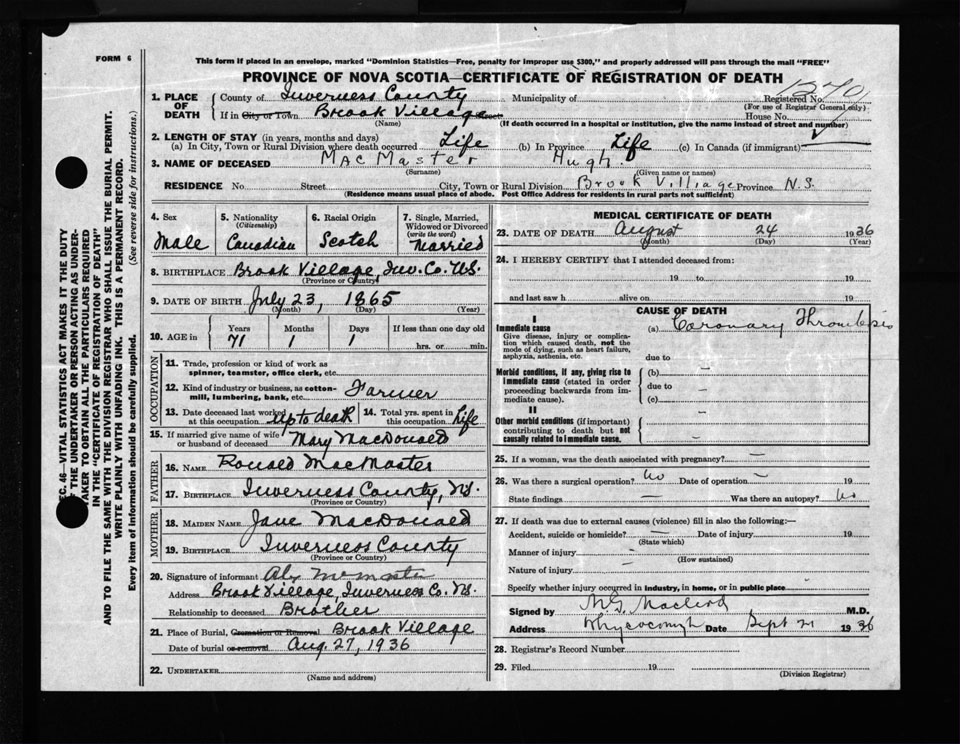 FORM 6
This form if placed in an envelope, marked "Dominion Statistics—Free, penalty for improper use $300," and properly addressed will pass through the mail "FREE"
PROVINCE OF NOVA SCOTIA—CERTIFICATE OF REGISTRATION OF DEATH
SEC. 46—VITAL STATISTICS ACT MAKES IT THE DUTY
OF THE UNDERTAKER OR PERSON ACTING AS UNDER-
TAKER TO OBTAIN ALL THE PARTICULARS REQUIRED
IN THE "CERTIFICATE OF REGISTRATION OF DEATH"
AND TO FILE THE SAME WITH THE DIVISION REGISTRAR WHO SHALL ISSUE THE BURIAL PERMIT.
WRITE PLAINLY WITH UNFADING INK. THIS IS A PERMANENT RECORD.
Every item of information should be carefully supplied. (See reverse side for instructions.)
1. PLACE OF DEATH
County of Inverness County Municipality of Registered No. 1370
(For use of Registrar General only)
If in City or Town Brook Village Street House No.
(Name) (If death occurred in a hospital or institution, give the name instead of street and number)
2. LENGTH OF STAY (in years, months and days)
(a) In City, Town or Rural Division where death occurred Life (b) In Province Life (c) In Canada (if immigrant)
3. NAME OF DECEASED MacMaster Hugh
(Surname) (Given name or names)
RESIDENCE No. Street City, Town or Rural Division Brook Villiage Province N.S.
(Residence means usual place of abode. Post Office Address for residents in rural parts not sufficient)
4. Sex Male
5. Nationality (Citizenship) Canadian
6. Racial Origin Scotch
7. Single, Married, Widowed or Divorced (write the word) Married
8. BIRTHPLACE Brook Village, Inv. Co. N.S.
(Province or Country)
9. DATE OF BIRTH July 23, 1865
(Month) (Day) (Year)
10. AGE in Years 71 Months 1 Days 1 If less than one day old hrs. or min.
OCCUPATION
11. Trade, profession or kind of work as
spinner, teamster, office clerk, etc.
12. Kind of industry or business, as cotton-
mill, lumbering, bank, etc. Farmer
13. Date deceased last worked at this occupation up to death 14. Total yrs. spent in this occupation Life
15. If married give name of wife or husband of deceased Mary MacDonald
FATHER
16. NAME Ronald MacMaster
17. BIRTHPLACE Inverness County, N.S.
(Province or Country)
MOTHER
18. MAIDEN NAME Jane MacDonald
19. BIRTHPLACE Inverness County
(Province or Country)
20. Signature of informant Alex McMaster
Address Brook Village, Inverness Co. N.S.
Relationship to deceased Brother
21. Place of Burial, Cremation or Removal Brook Village
Date of burial or removal Aug. 27, 1936
22. UNDERTAKER
(Name and address)
MEDICAL CERTIFICATE OF DEATH
23. DATE OF DEATH August 24 1936
(Month) (Day) (Year)
24. I HEREBY CERTIFY that I attended deceased from:
19 to 19
and last saw h alive on 19
CAUSE OF DEATH
I
Immediate cause (a) Coronary Thrombosis
Give disease, injury or complica-
tion which caused death, not the
mode of dying, such as heart failure,
asphyxia, asthenia, etc. due to
Morbid conditions, if any, giving rise to
immediate cause (stated in order
proceeding backwards from im-
mediate cause). (b) —
due to —
(c)
II
Other morbid conditions (if important)
contributing to death but not
causally related to immediate cause.
25. If a woman, was the death associated with pregnancy? —
26. Was there a surgical operation? No Date of operation —
State findings — Was there an autopsy? No
27. If death was due to external causes (violence) fill in also the following:—
Accident, suicide or homicide? — Date of injury 19
(State which)
Manner of injury —
(How sustained)
Nature of injury —
Specify whether injury occurred in industry, in home, or in public place
Signed by M.G. MacLeod M.D.
Address Whycocomagh Date Sept 21 1936
28. Registrar's Record Number
29. Filed 19
(Division Registrar)